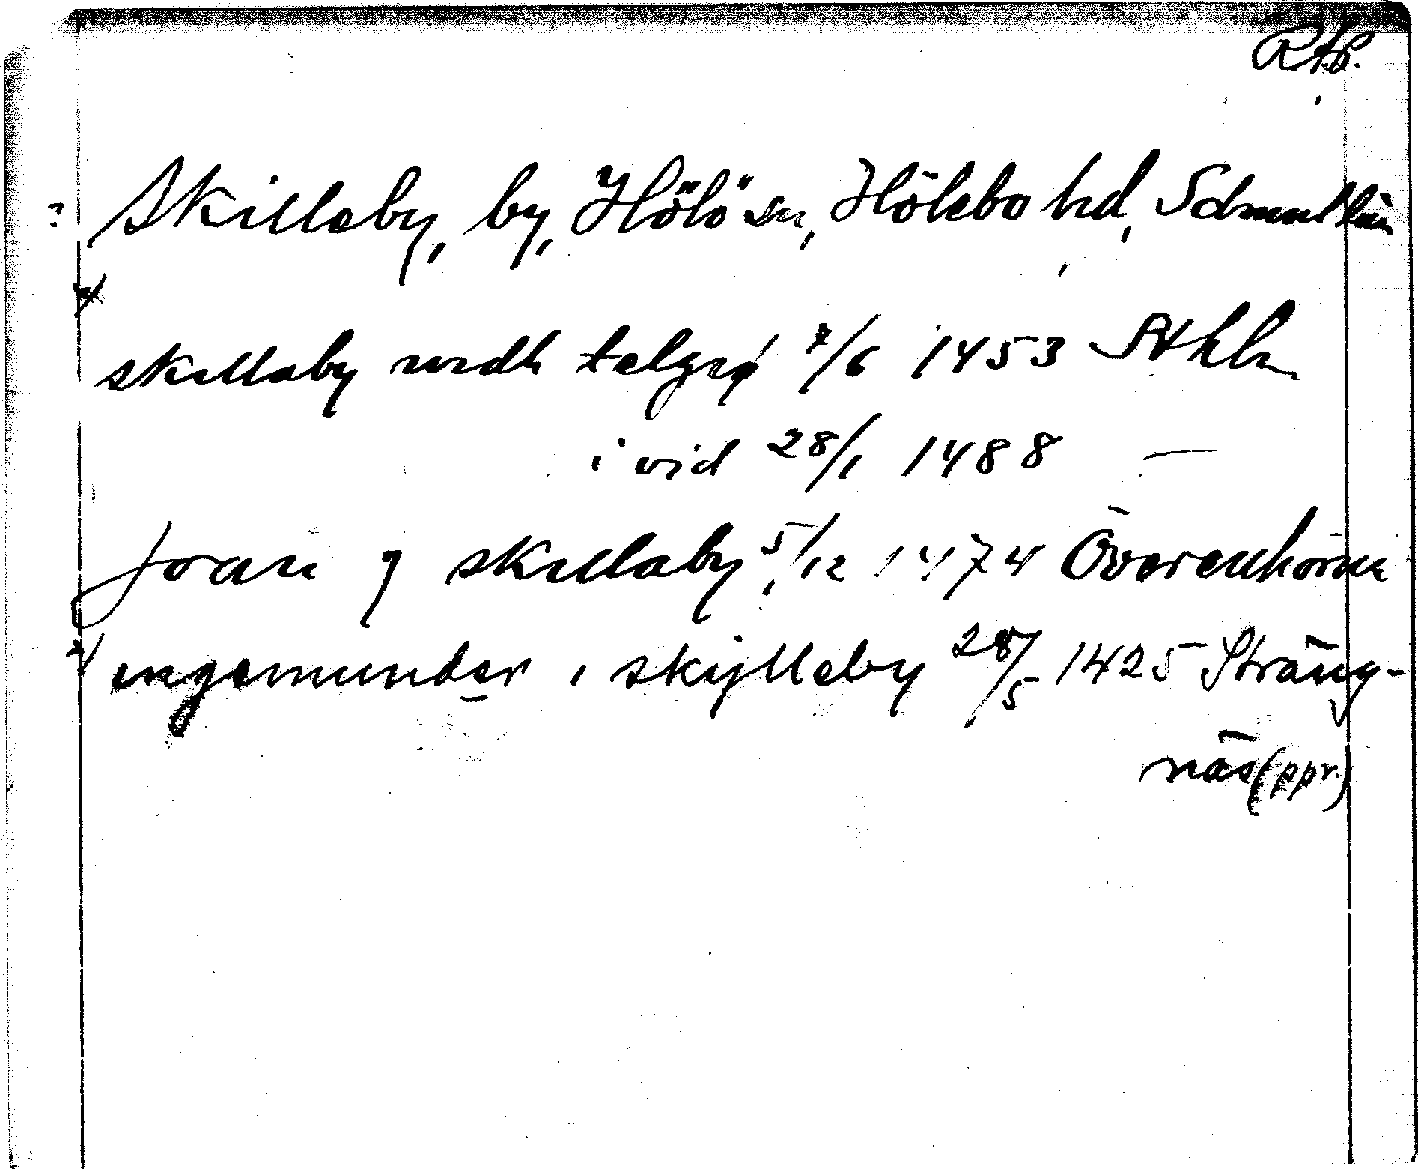 Skilleby, by, Hölö sn, Hölebo hd, Sdmnl län
skillaby widh telgiø 7/6 1453 Sthlm
i vid 28/1 1488 —
Joan j skillaby 5/12 1474 Överenhörna
ingemunder i skylleby 28/5 1425 Sträng-
näs (ppr)